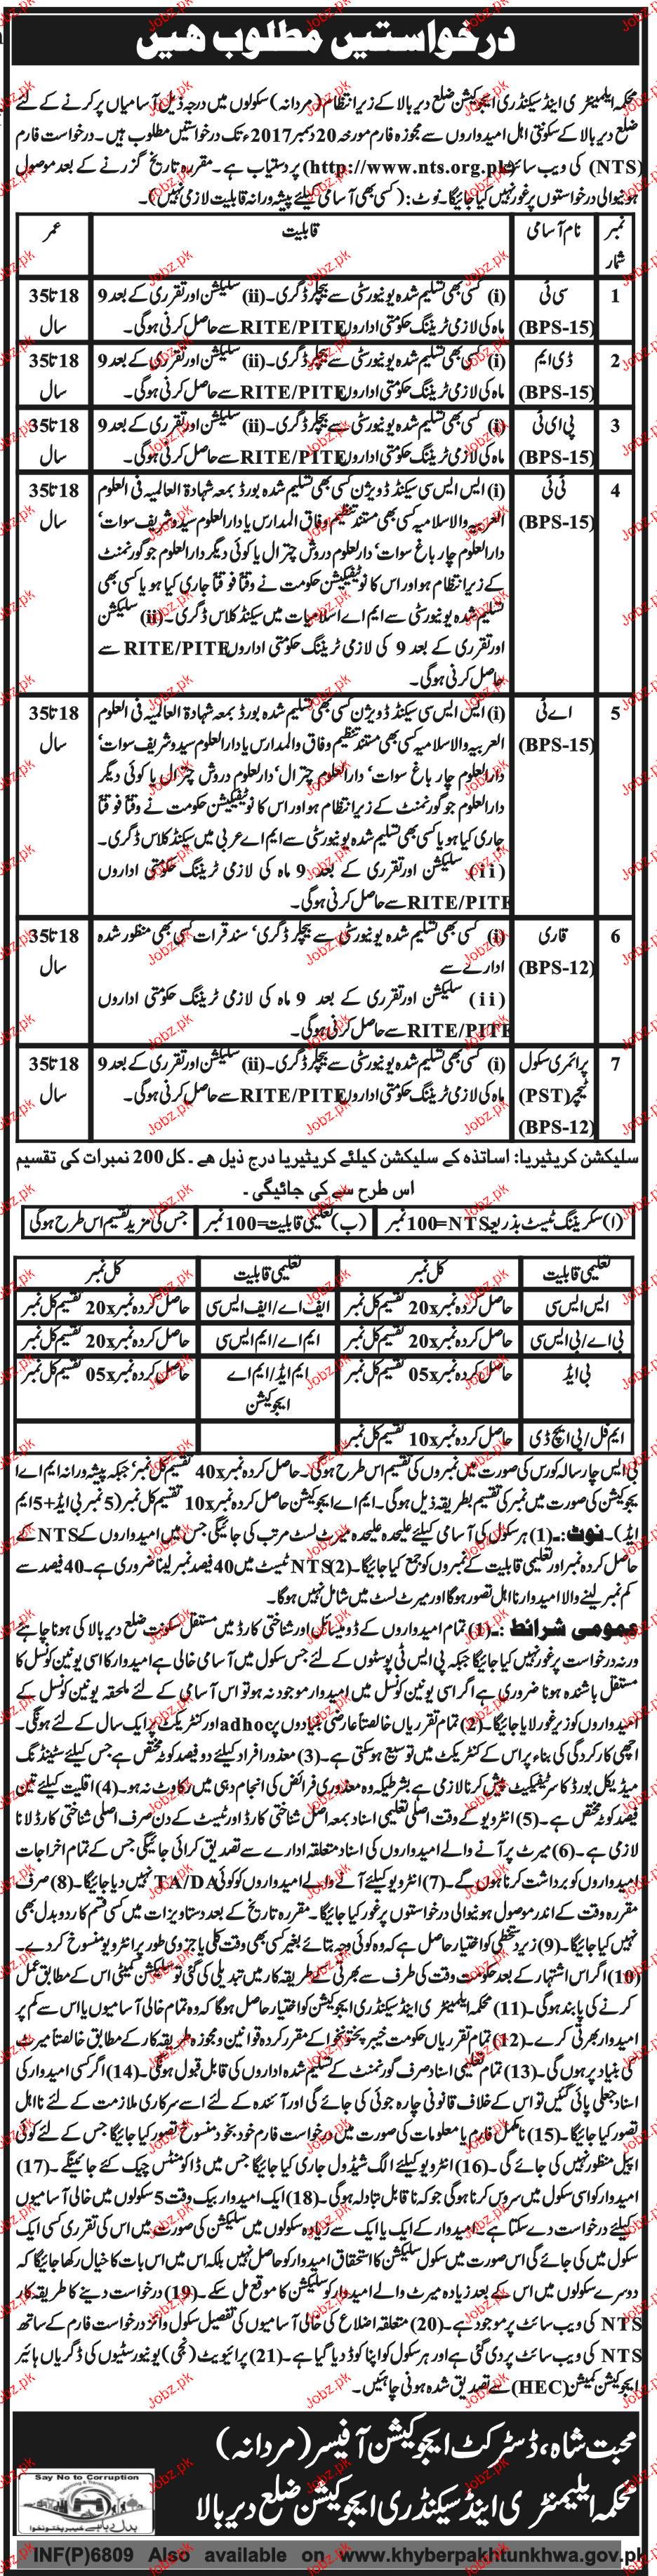 درخواستیں مطلوب ھیں
محکمہ ایلیمنٹری اینڈ سیکنڈری ایجوکیشن ضلع دیر بالا کے زیر انتظام (مردانہ) سکولوں میں درجہ ذیل آسامیاں پر کرنے کے لئے
ضلع دیر بالا کے سکونتی اہل امیدواروں سے مجوزہ فارم مورخہ 20 دسمبر 2017ء تک درخواستیں مطلوب ہیں۔ درخواست فارم
(NTS) کی ویب سائٹ (http://www.nts.org.pk) پر دستیاب ہے۔ مقررہ تاریخ گزرنے کے بعد موصول
ہونیوالی درخواستوں پر غور نہیں کیا جائیگا۔ نوٹ: (کسی بھی آسامی کیلئے پیشہ ورانہ قابلیت لازمی نہیں)۔
نمبر شمار نام آسامی قابلیت عمر
1 سی ٹی (i) کسی بھی تسلیم شدہ یونیورسٹی سے بیچلر ڈگری۔ (ii) سلیکشن اور تقرری کے بعد 9 18 تا 35
(BPS-15) ماہ کی لازمی ٹریننگ حکومتی اداروں RITE/PITE سے حاصل کرنی ہوگی۔ سال
2 ڈی ایم (i) کسی بھی تسلیم شدہ یونیورسٹی سے بیچلر ڈگری۔ (ii) سلیکشن اور تقرری کے بعد 9 18 تا 35
(BPS-15) ماہ کی لازمی ٹریننگ حکومتی اداروں RITE/PITE سے حاصل کرنی ہوگی۔ سال
3 پی ای ٹی (i) کسی بھی تسلیم شدہ یونیورسٹی سے بیچلر ڈگری۔ (ii) سلیکشن اور تقرری کے بعد 9 18 تا 35
(BPS-15) ماہ کی لازمی ٹریننگ حکومتی اداروں RITE/PITE سے حاصل کرنی ہوگی۔ سال
4 ٹی ٹی (i) ایس ایس سی سیکنڈ ڈویژن کسی بھی تسلیم شدہ بورڈ بمعہ شہادۃ العالمیہ فی العلوم 18 تا 35
(BPS-15) العربیہ والاسلامیہ کسی بھی مستند تنظیم وفاق المدارس یا دارالعلوم سیدو شریف سوات‘ سال
دارالعلوم چار باغ سوات‘ دارالعلوم دروش چترال یا کوئی دیگر دارالعلوم جو گورنمنٹ
کے زیر انتظام ہو اور اس کا نوٹیفیکیشن حکومت نے وقتاً فوقتاً جاری کیا ہو یا کسی بھی
تسلیم شدہ یونیورسٹی سے ایم اے اسلامیات میں سیکنڈ کلاس ڈگری۔ (ii) سلیکشن
اور تقرری کے بعد 9 کی لازمی ٹریننگ حکومتی اداروں RITE/PITE سے
حاصل کرنی ہوگی۔
5 اے ٹی (i) ایس ایس سی سیکنڈ ڈویژن کسی بھی تسلیم شدہ بورڈ بمعہ شہادۃ العالمیہ فی العلوم 18 تا 35
(BPS-15) العربیہ والاسلامیہ کسی بھی مستند تنظیم وفاق والمدارس یا دارالعلوم سیدو شریف سوات‘ سال
دارالعلوم چار باغ سوات‘ دارالعلوم چترال‘ دارالعلوم دروش چترال یا کوئی دیگر
دارالعلوم جو گورنمنٹ کے زیر انتظام ہو اور اس کا نوٹیفیکیشن حکومت نے وقتاً فوقتاً
جاری کیا ہو یا کسی بھی تسلیم شدہ یونیورسٹی سے ایم اے عربی میں سیکنڈ کلاس ڈگری۔
(ii) سلیکشن اور تقرری کے بعد 9 ماہ کی لازمی ٹریننگ حکومتی اداروں
RITE/PITE سے حاصل کرنی ہوگی۔
6 قاری (i) کسی بھی تسلیم شدہ یونیورسٹی سے بیچلر ڈگری‘ سند قرات کسی بھی منظور شدہ 18 تا 35
(BPS-12) ادارے سے سال
(ii) سلیکشن اور تقرری کے بعد 9 ماہ کی لازمی ٹریننگ حکومتی اداروں
RITE/PITE سے حاصل کرنی ہوگی۔
7 پرائمری سکول (i) کسی بھی تسلیم شدہ یونیورسٹی سے بیچلر ڈگری۔ (ii) سلیکشن اور تقرری کے بعد 9 18 تا 35
ٹیچر (PST) ماہ کی لازمی ٹریننگ حکومتی اداروں RITE/PITE سے حاصل کرنی ہوگی۔ سال
(BPS-12)
سلیکشن کریٹیریا: اساتذہ کے سلیکشن کیلئے کریٹیریا درج ذیل ھے۔ کل 200 نمبرات کی تقسیم
اس طرح سے کی جائیگی۔
(ا) سکریننگ ٹیسٹ بذریعہ NTS=100 نمبر (ب) تعلیمی قابلیت=100 نمبر جس کی مزید تقسیم اس طرح ہوگی
تعلیمی قابلیت کل نمبر تعلیمی قابلیت کل نمبر
ایس ایس سی حاصل کردہ نمبر x20 تقسیم کل نمبر ایف اے/ایف ایس سی حاصل کردہ نمبر x20 تقسیم کل نمبر
بی اے/بی ایس سی حاصل کردہ نمبر x20 تقسیم کل نمبر ایم اے/ایم ایس سی حاصل کردہ نمبر x20 تقسیم کل نمبر
بی ایڈ حاصل کردہ نمبر x05 تقسیم کل نمبر ایم ایڈ/ایم اے ایجوکیشن حاصل کردہ نمبر x05 تقسیم کل نمبر
ایم فل/پی ایچ ڈی حاصل کردہ نمبر x10 تقسیم کل نمبر
بی ایس چار سالہ کورس کی صورت میں نمبروں کی تقسیم اس طرح ہوگی۔ حاصل کردہ نمبر x40 تقسیم کل نمبر‘ جبکہ پیشہ ورانہ ایم اے
ایجوکیشن کی صورت میں نمبر کی تقسیم بطریقہ ذیل ہوگی۔ ایم اے ایجوکیشن حاصل کردہ نمبر x10 تقسیم کل نمبر (5 نمبر بی ایڈ+5 ایم
ایڈ)۔ نوٹ:۔ (1) ہر سکول کی آسامی کیلئے علیحدہ علیحدہ میرٹ لسٹ مرتب کی جائیگی جس میں امیدواروں کے NTS کے
حاصل کردہ نمبر اور تعلیمی قابلیت کے نمبروں کو جمع کیا جائیگا۔ (2) NTS ٹیسٹ میں 40 فیصد نمبر لینا ضروری ہے۔ 40 فیصد سے
کم نمبر لینے والا امیدوار نااہل تصور ہوگا اور میرٹ لسٹ میں شامل نہیں ہوگا۔
عمومی شرائط:۔ (1) تمام امیدواروں کے ڈومیسائل اور شناختی کارڈ میں مستقل سکونت ضلع دیر بالا کی ہونا چاہئے
ورنہ درخواست پر غور نہیں کیا جائیگا جبکہ پی ایس ٹی پوسٹوں کے لئے جس سکول میں آسامی خالی ہے امیدوار کا اسی یونین کونسل کا
مستقل باشندہ ہونا ضروری ہے اگر اسی یونین کونسل میں امیدوار موجود نہ ہو تو اس آسامی کے لئے ملحقہ یونین کونسل کے
امیدواروں کو زیر غور لایا جائیگا۔ (2) تمام تقرریاں خالصتاً عارضی بنیادوں پر adhoc اور کنٹریکٹ پر ایک سال کے لئے ہونگی۔
اچھی کارکردگی کی بناء پر اس کے کنٹریکٹ میں توسیع ہوسکتی ہے۔ (3) معذور افراد کیلئے دو فیصد کوٹہ مختص ہے جس کیلئے سٹینڈنگ
میڈیکل بورڈ کا سرٹیفکیٹ پیش کرنا لازمی ہے بشرطیکہ وہ معذوری فرائض کی انجام دہی میں رکاوٹ نہ ہو۔ (4) اقلیت کیلئے تین
فیصد کوٹہ مختص ہے۔ (5) انٹرویو کے وقت اصلی تعلیمی اسناد بمعہ اصل شناختی کارڈ اور ٹیسٹ کے دن صرف اصلی شناختی کارڈ لانا
لازمی ہے۔ (6) میرٹ پر آنے والے امیدواروں کی اسناد متعلقہ ادارے سے تصدیق کرائی جائیگی جس کے تمام اخراجات
امیدواروں کو برداشت کرنا ہوں گے۔ (7) انٹرویو کیلئے آنے والے امیدواروں کو کوئی TA/DA نہیں دیا جائیگا۔ (8) صرف
مقررہ وقت کے اندر موصول ہونیوالی درخواستوں پر غور کیا جائیگا۔ مقررہ تاریخ کے بعد دستاویزات میں کسی قسم کا ردوبدل بھی
نہیں کیا جائیگا۔ (9) زیر دستخطی کو اختیار حاصل ہے کہ وہ کوئی وجہ بتائے بغیر کسی بھی وقت کلی یا جزوی طور پر انٹرویو منسوخ کر دے۔
(10) اگر اس اشتہار کے بعد حکومت وقت کی طرف سے بھرتی کے طریقہ کار میں تبدیلی کی گئی تو سلیکشن کمیٹی اس کے مطابق عمل
کرنے کی پابند ہوگی۔ (11) محکمہ ایلیمنٹری اینڈ سیکنڈری ایجوکیشن کو اختیار حاصل ہوگا کہ وہ تمام خالی آسامیوں یا اس سے کم پر
امیدوار بھرتی کرے۔ (12) تمام تقرریاں حکومت خیبر پختونخوا کے مقرر کردہ قوانین و مجوزہ طریقہ کار کے مطابق خالصتاً میرٹ
کی بنیاد پر ہوں گی۔ (13) تمام تعلیمی اسناد صرف گورنمنٹ کے تسلیم شدہ اداروں کی قابل قبول ہوگی۔ (14) اگر کسی امیدوار کی
اسناد جعلی پائی گئیں تو اس کے خلاف قانونی چارہ جوئی کی جائے گی اور آئندہ کے لئے اسے سرکاری ملازمت کے لئے نااہل
تصور کیا جائیگا۔ (15) نامکمل فارم یا معلومات کی صورت میں درخواست فارم خود بخود منسوخ تصور کیا جائیگا جس کے لئے کوئی
اپیل منظور نہیں کی جائے گی۔ (16) انٹرویو کیلئے الگ شیڈول جاری کیا جائیگا جس میں ڈاکومنٹس چیک کئے جائینگے۔ (17)
امیدوار کو اسی سکول میں سروس کرنا ہوگی جو کہ ناقابل تبادلہ ہوگی۔ (18) ایک امیدوار بیک وقت 5 سکولوں میں خالی آسامیوں
کیلئے درخواست دے سکتا ہے۔ امیدوار کے ایک یا ایک سے زیادہ سکولوں میں سلیکشن کی صورت میں اس کی تقرری کسی ایک
سکول میں کی جائے گی اس صورت میں سکول سلیکشن کا استحقاق امیدوار کو حاصل نہیں بلکہ اس میں اس بات کا خیال رکھا جائیگا کہ
دوسرے سکولوں میں اس کے بعد زیادہ میرٹ والے امیدوار کو سلیکشن کا موقع مل سکے۔ (19) درخواست دینے کا طریقہ کار
NTS کی ویب سائٹ پر موجود ہے۔ (20) متعلقہ اضلاع کی خالی آسامیوں کی تفصیل سکول وائز درخواست فارم کے ساتھ
NTS کی ویب سائٹ پر دی گئی ہے اور ہر سکول کو اپنا کوڈ دیا گیا ہے۔ (21) پرائیویٹ (نجی) یونیورسٹیوں کی ڈگریاں ہائیر
ایجوکیشن کمیشن (HEC) سے تصدیق شدہ ہونی چاہئیں۔
محبت شاہ، ڈسٹرکٹ ایجوکیشن آفیسر (مردانہ)
محکمہ ایلیمنٹری اینڈ سیکنڈری ایجوکیشن ضلع دیر بالا
Say No to Corruption
بدل رہا ہے خیبر پختونخوا
INF(P)6809 Also available on www.khyberpakhtunkhwa.gov.pk
Jobz.pk